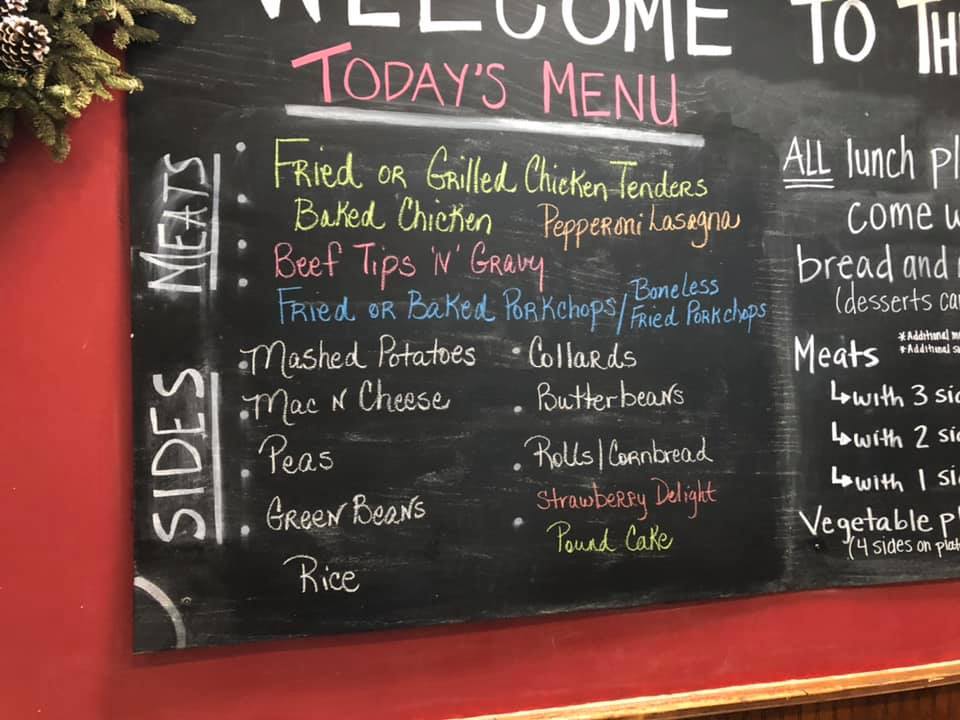 WELCOME TO
TODAY'S MENU
MEATS
Fried or Grilled Chicken Tenders
Baked Chicken
Pepperoni Lasagna
Beef Tips 'N' Gravy
Fried or Baked Porkchops/
Boneless
Fried Porkchops
SIDES
Mashed Potatoes
Mac N Cheese
Peas
Green Beans
Rice
Collards
Butterbeans
Rolls/Cornbread
Strawberry Delight
Pound Cake
ALL lunch
come
bread and
(desserts
Meats
*Additional
*Additional
↳with 3
↳with 2
↳with 1
Vegetable
(4 sides on